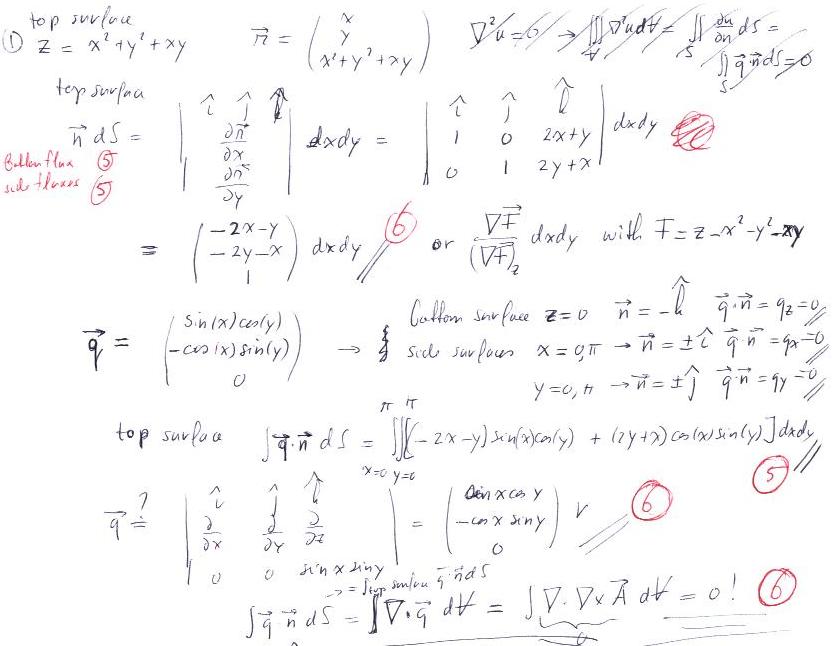 top surface
① z = x² + y² + xy    r⃗ = ( x  y  x²+y²+xy )    ∇²u = 0 → ∭_V ∇²u dV = ∬_S ∂u/∂n dS =
∬_S q⃗·n⃗ dS = 0
top surface
n⃗ dS = | î ĵ k̂ ; ∂r⃗/∂x ; ∂r⃗/∂y | dxdy = | î ĵ k̂ ; 1 0 2x+y ; 0 1 2y+x | dxdy
Bottom flux ⑤
side fluxes ⑤
= ( -2x-y  -2y-x  1 ) dxdy ⑥ or ∇F/(∇F)_z dxdy with F = z - x² - y² - xy
q⃗ = ( sin(x)cos(y)  -cos(x)sin(y)  0 ) → { bottom surface z = 0  n⃗ = -k̂  q⃗·n⃗ = q_z = 0
side surfaces x = 0,π → n⃗ = ±î  q⃗·n⃗ = q_x = 0
y = 0,π → n⃗ = ±ĵ  q⃗·n⃗ = q_y = 0
top surface ∫ q⃗·n⃗ dS = ∫_{x=0}^{π} ∫_{y=0}^{π} [(-2x-y) sin(x)cos(y) + (2y+x) cos(x)sin(y)] dxdy
⑤
q⃗ ≟ | î ĵ k̂ ; ∂/∂x ∂/∂y ∂/∂z ; 0 0 sin x sin y | = ( sin x cos y  -cos x sin y  0 ) v ⑥
→ = ∫ top surface q⃗·n⃗ dS
∫ q⃗·n⃗ dS = ∫ ∇·q⃗ dV = ∫ ∇·∇×A⃗ dV = 0 ! ⑥
0